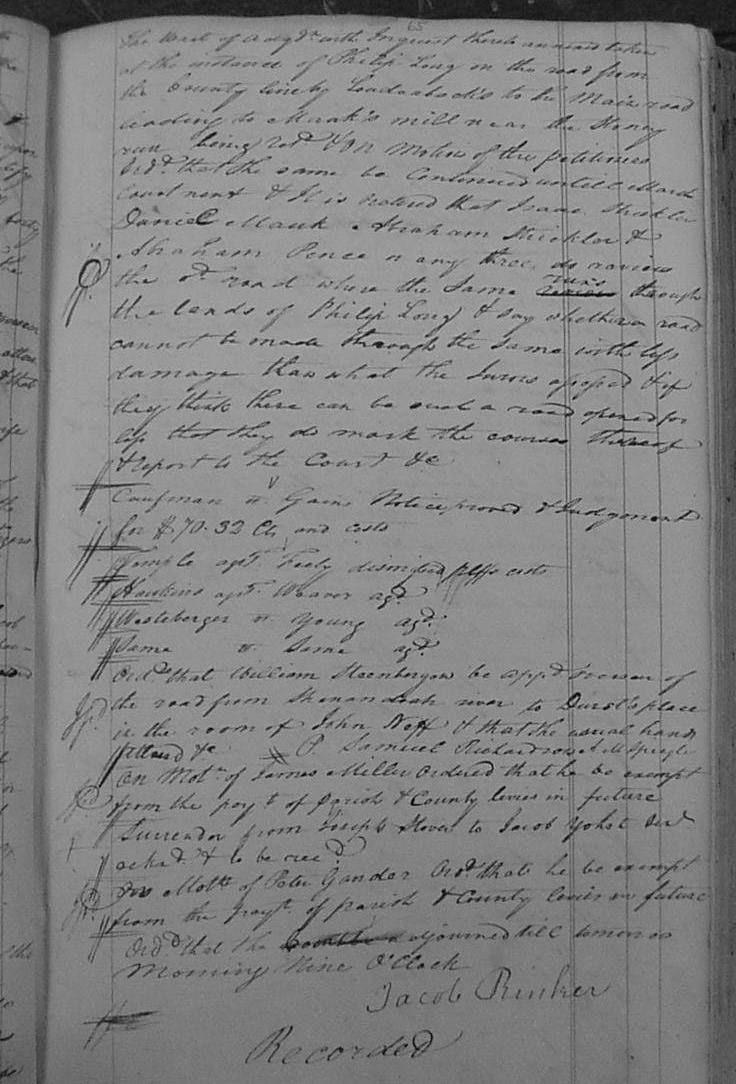 65
The Writ of adqd. with Inquest thereto annexed taken
at the instance of Philip Long on the road from
the County line by Louderback's to the Main road
leading to Mauk's mill near the Stoney
run being retd. & On Motion of the petitioner
Ord. that the same be Continued untill March
Court next & It is ordered that Isaac Strickler
Daniel Mauk Abraham Strickler &
Abraham Pence or any three do review
the sd. road where the Same runs through
the lands of Philip Long & say whether a road
cannot be made through the Same with less
damage than what the Jurors assessed & if
they think there can be such a road opened for
less that they do mark the courses thereof
& report to the Court &c
Coufman v. Gains Notice proved & Judgment
for $70.32 Cts and costs
Temple agt. Feely dismissed plffs costs
Hawkins agt. Weaver agd.
Westeberger v. Young agd.
Same v. Same agd.
Ord. that William Steenbergen be appd. Overseer of
the road from Shenandoah river to Durst's place
in the room of John Neff & that the usual hands
attend &c P. Samuel Richardson
On Mot. of James Miller Ordered that he be exempt
from the payt. of Parish & County levies in future
Surrender from Joseph Stover to Jacob Yohst
ackd. & to be recd.
On Moth. of Peter Gander Ord. that he be exempt
from the payt. of parish & County levies in future
Ord. that the adjourned till tomorrow
Morning Nine O'Clock
Jacob Rinker
Recorded